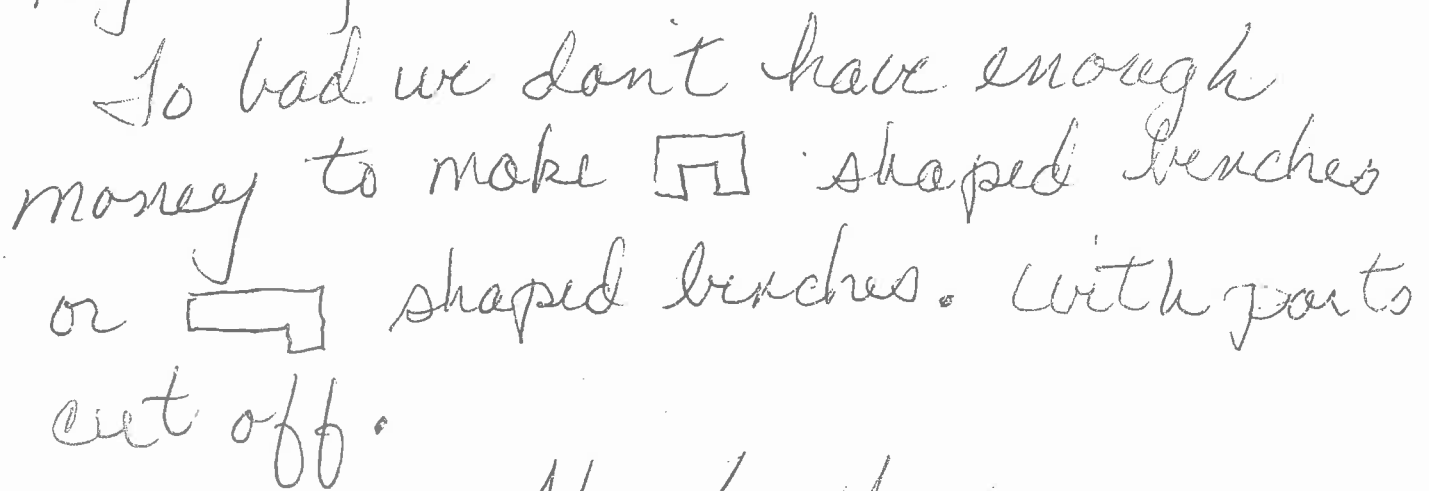 To bad we don't have enough
money to make shaped benches
or shaped benches. With parts
cut off.